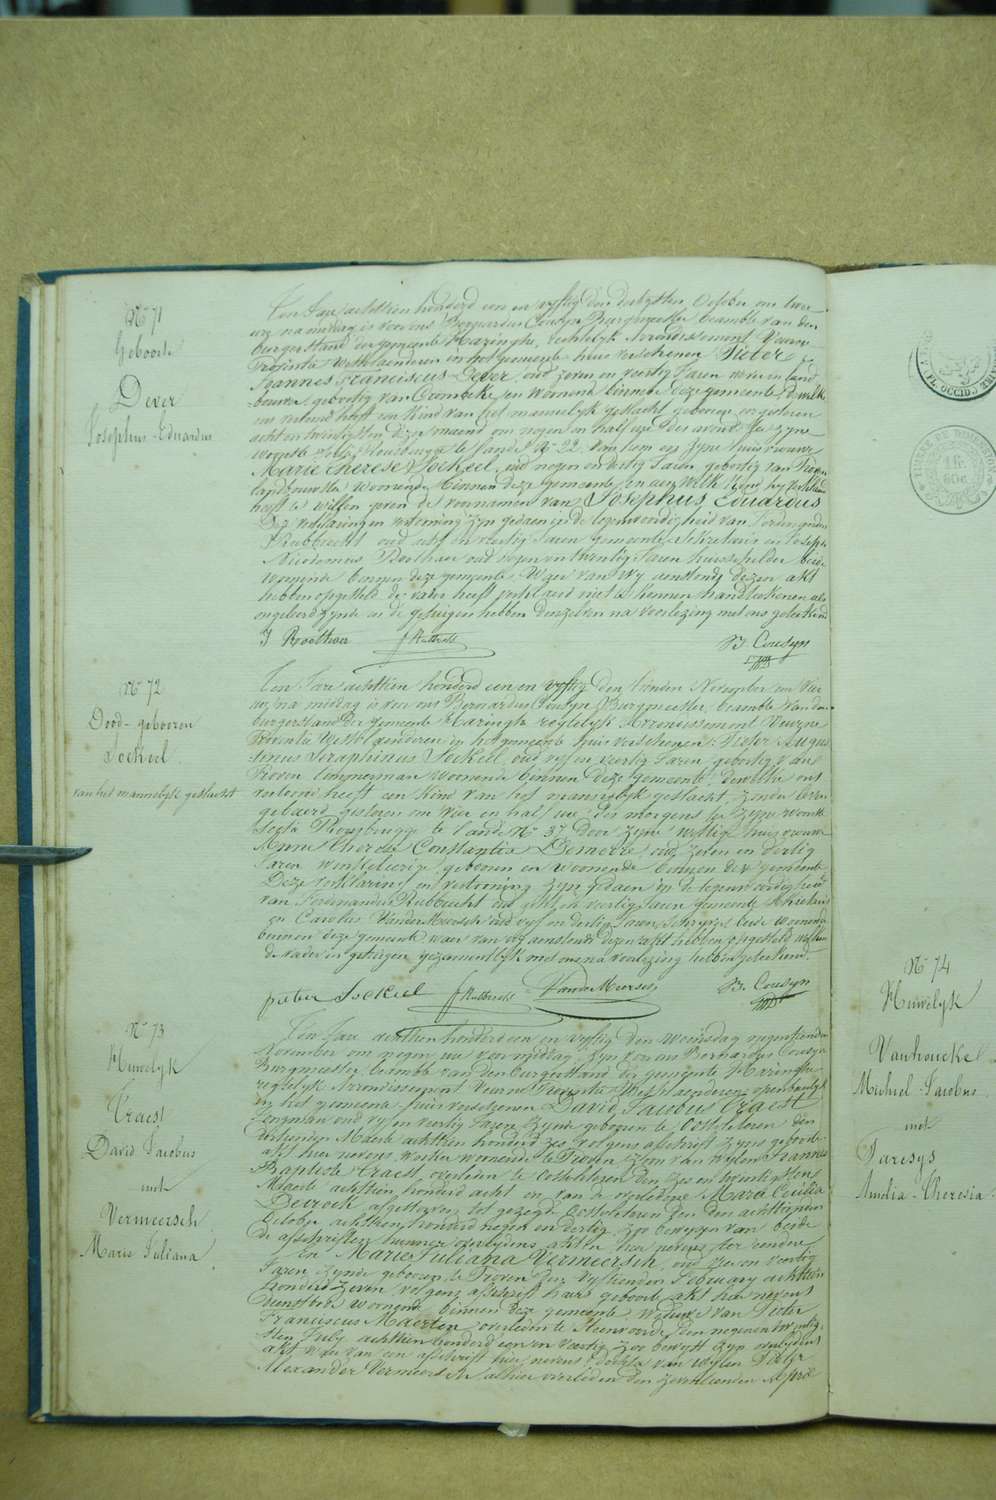 N° 71
Geboorte
Dever
Josephus Eduardus
Ten Jare achttien honderd een en vyftig den October om twee
ure na middag is voor ons Bernardus Cousyn Burgmeester beambte van den
burgerstand der gemeente Haringhe, Arrondissement Veurne
Provintie Westvlaenderen in het gemeente huis verschenen Pieter
Joannes Franciscus Dever, oud zeven en veertig Jaren
bouwer, geboortig van Crombeke en woonende binnen deze gemeente dewelke
ons vertoond heeft een kind van het mannelyk geslacht geboren gisteren
acht en twintigsten dezer maend om negen en half ure des avond in zyne
woonste Rousbrugge te Lande N° 22 van hem en zyne huisvrouwe
Marie Therese Sockeel, oud negen en dertig Jaren geboortig van Proven
landbouwster woonende binnen deze gemeente en aen welk kind hy verklaerd
heeft te willen geven de voornamen van Josephus Eduardus
Deze verklaring en vertooning zyn gedaen in de tegenwoordigheid van Ferdinandus
Rubbrecht oud acht en veertig Jaren gemeente Secretaris en Joseph
oud negen en twintig Jaren huisschilder beide
woonende binnen deze gemeente. Waer van Wy aenstonds dezen akt
hebben opgesteld de vader heeft verklaerd niet te kunnen handteekenen als
ongeleerd zynde en de getuigen hebben denzelven na voorlezing met ons geteekend
J Boothaer F Rubbrecht B. Cousyn
N° 72
Dood-geboren
Sockeel
van het mannelyk geslacht
Ten Jare achttien honderd een en vyftig den tienden November om vier
ure na middag is voor ons Bernardus Cousyn Burgmeester, beambte van den
burgerstand der gemeente Haringhe regtelyk Arrondissement Veurne
Provintie Westvlaenderen in het gemeente huis verschenen Pieter Augus
tinus Seraphinus Sockeel, oud vyf en veertig Jaren, geboortig van
Proven timmerman woonende binnen deze gemeente, dewelke ons
vertoond heeft een kind van het mannelyk geslacht, zonder leven
gebaerd gisteren om vier en half ure des morgens in zyne woonste
Sectie Rousbrugge te Lande N° 37 door zyne wettige huisvrouwe
Anne Therese Constantia Demerre, oud zeven en dertig
Jaren winkelierige geboren en woonende binnen deze gemeente.
Deze verklaring en vertooning zyn gedaen in de tegenwoordigheid
van Ferdinandus Rubbrecht oud acht en veertig Jaren gemeente Secretaris
en Carolus VanderMeersch oud vyf en dertig Jaren Schryver beide woonende
binnen deze gemeente waer van wy aenstonds dezen akt hebben opgesteld welken
de vader en getuigen gezamentlyk met ons na voorlezing hebben geteekend.
pieter Sockeel F Rubbrecht VanderMeersch B. Cousyn
N° 73
Huwelyk
Traest
David Jacobus
met
Vermeersch
Marie Juliana
Ten Jare achttien honderd een en vyftig den Woensdag negentienden
November om negen ure voor middag, zyn voor ons Bernardus Cousyn
Burgmeester beambte van den burgerstand der gemeente Haringhe
regtelyk Arrondissement Veurne Provintie Westvlaenderen openbaerlyk
in het gemeente huis verschenen David Jacobus Traest
Jongman oud vyf en veertig Jaren zynde geboren te Oostvleteren den
Maerte achttien honderd zes, volgens afschrift zyns geboorte
akt hier nevens, woonende te Proven zoon van wylen Joannes
Baptiste Traest, overleden te Oostvleteren den zes en twintigsten
Maerte achttien honderd acht en van de overledene Marie Cecilia
Decroock, afgestorven tot gezegde Oostvleteren den achttienden
October achttien honderd negen en dertig, zoo bewyzen van beide
de afschriften hunner overlydens akten hier nevens ter eendere
En Marie Juliana Vermeersch, oud vier en veertig
Jaren, zynde geboren te Proven den vyftienden February achttien
honderd zeven, volgens afschrift hare geboorte akt hier nevens
woonende binnen deze gemeente Weduwe van Pieter
Franciscus Maerten, overleden te Steenvoorde den negenentwintig
sten July achttien honderd een en veertig, zoo bewyst zyn overlydens
akt waer van een afschrift hier nevens, dochter van wylen Pieter
Alexander Vermeersch, alhier overleden den zeventienden April
N° 74
Huwelyk
Vanhoucke
Michiel Jacobus
met
Daresys
Amelia Theresia
(FL. OCCID.)
TIMBRE DE DIMENSION
1 fr.
60c.